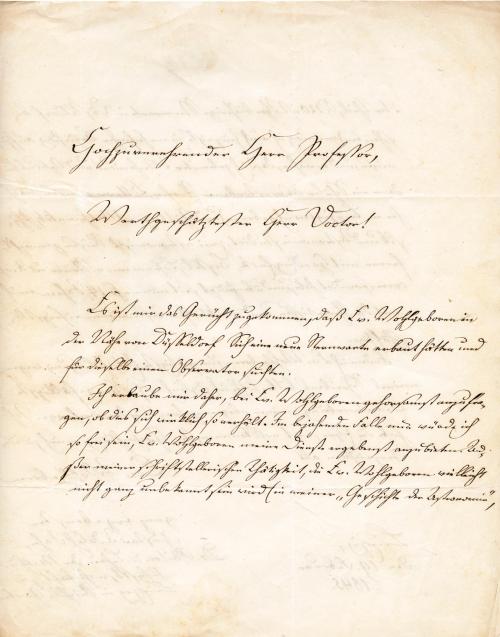 Hochzuverehrender Herr Professor,
Werthgeschätztester Herr Doctor!
Es ist mir das Gerücht zugekommen, daß Ew. Wohlgeboren in
der Nähe von Düsseldorf eine neue Sternwarte erbaut hätten und
für dieselbe einen Observator suchten.
Ich erlaube mir daher, bei Ew. Wohlgeboren gehorsamst anzufra-
gen, ob dies sich wirklich so verhält. Im bejahenden Fall würde ich
so frei sein, Ew. Wohlgeboren meine Dienste ergebenst anzubieten. Aus-
ser meiner schriftstellerischen Thätigkeit, die Ew. Wohlgeboren vielleicht
nicht ganz unbekannt sein wird (in meiner „Geschichte der Astronomie",
1848